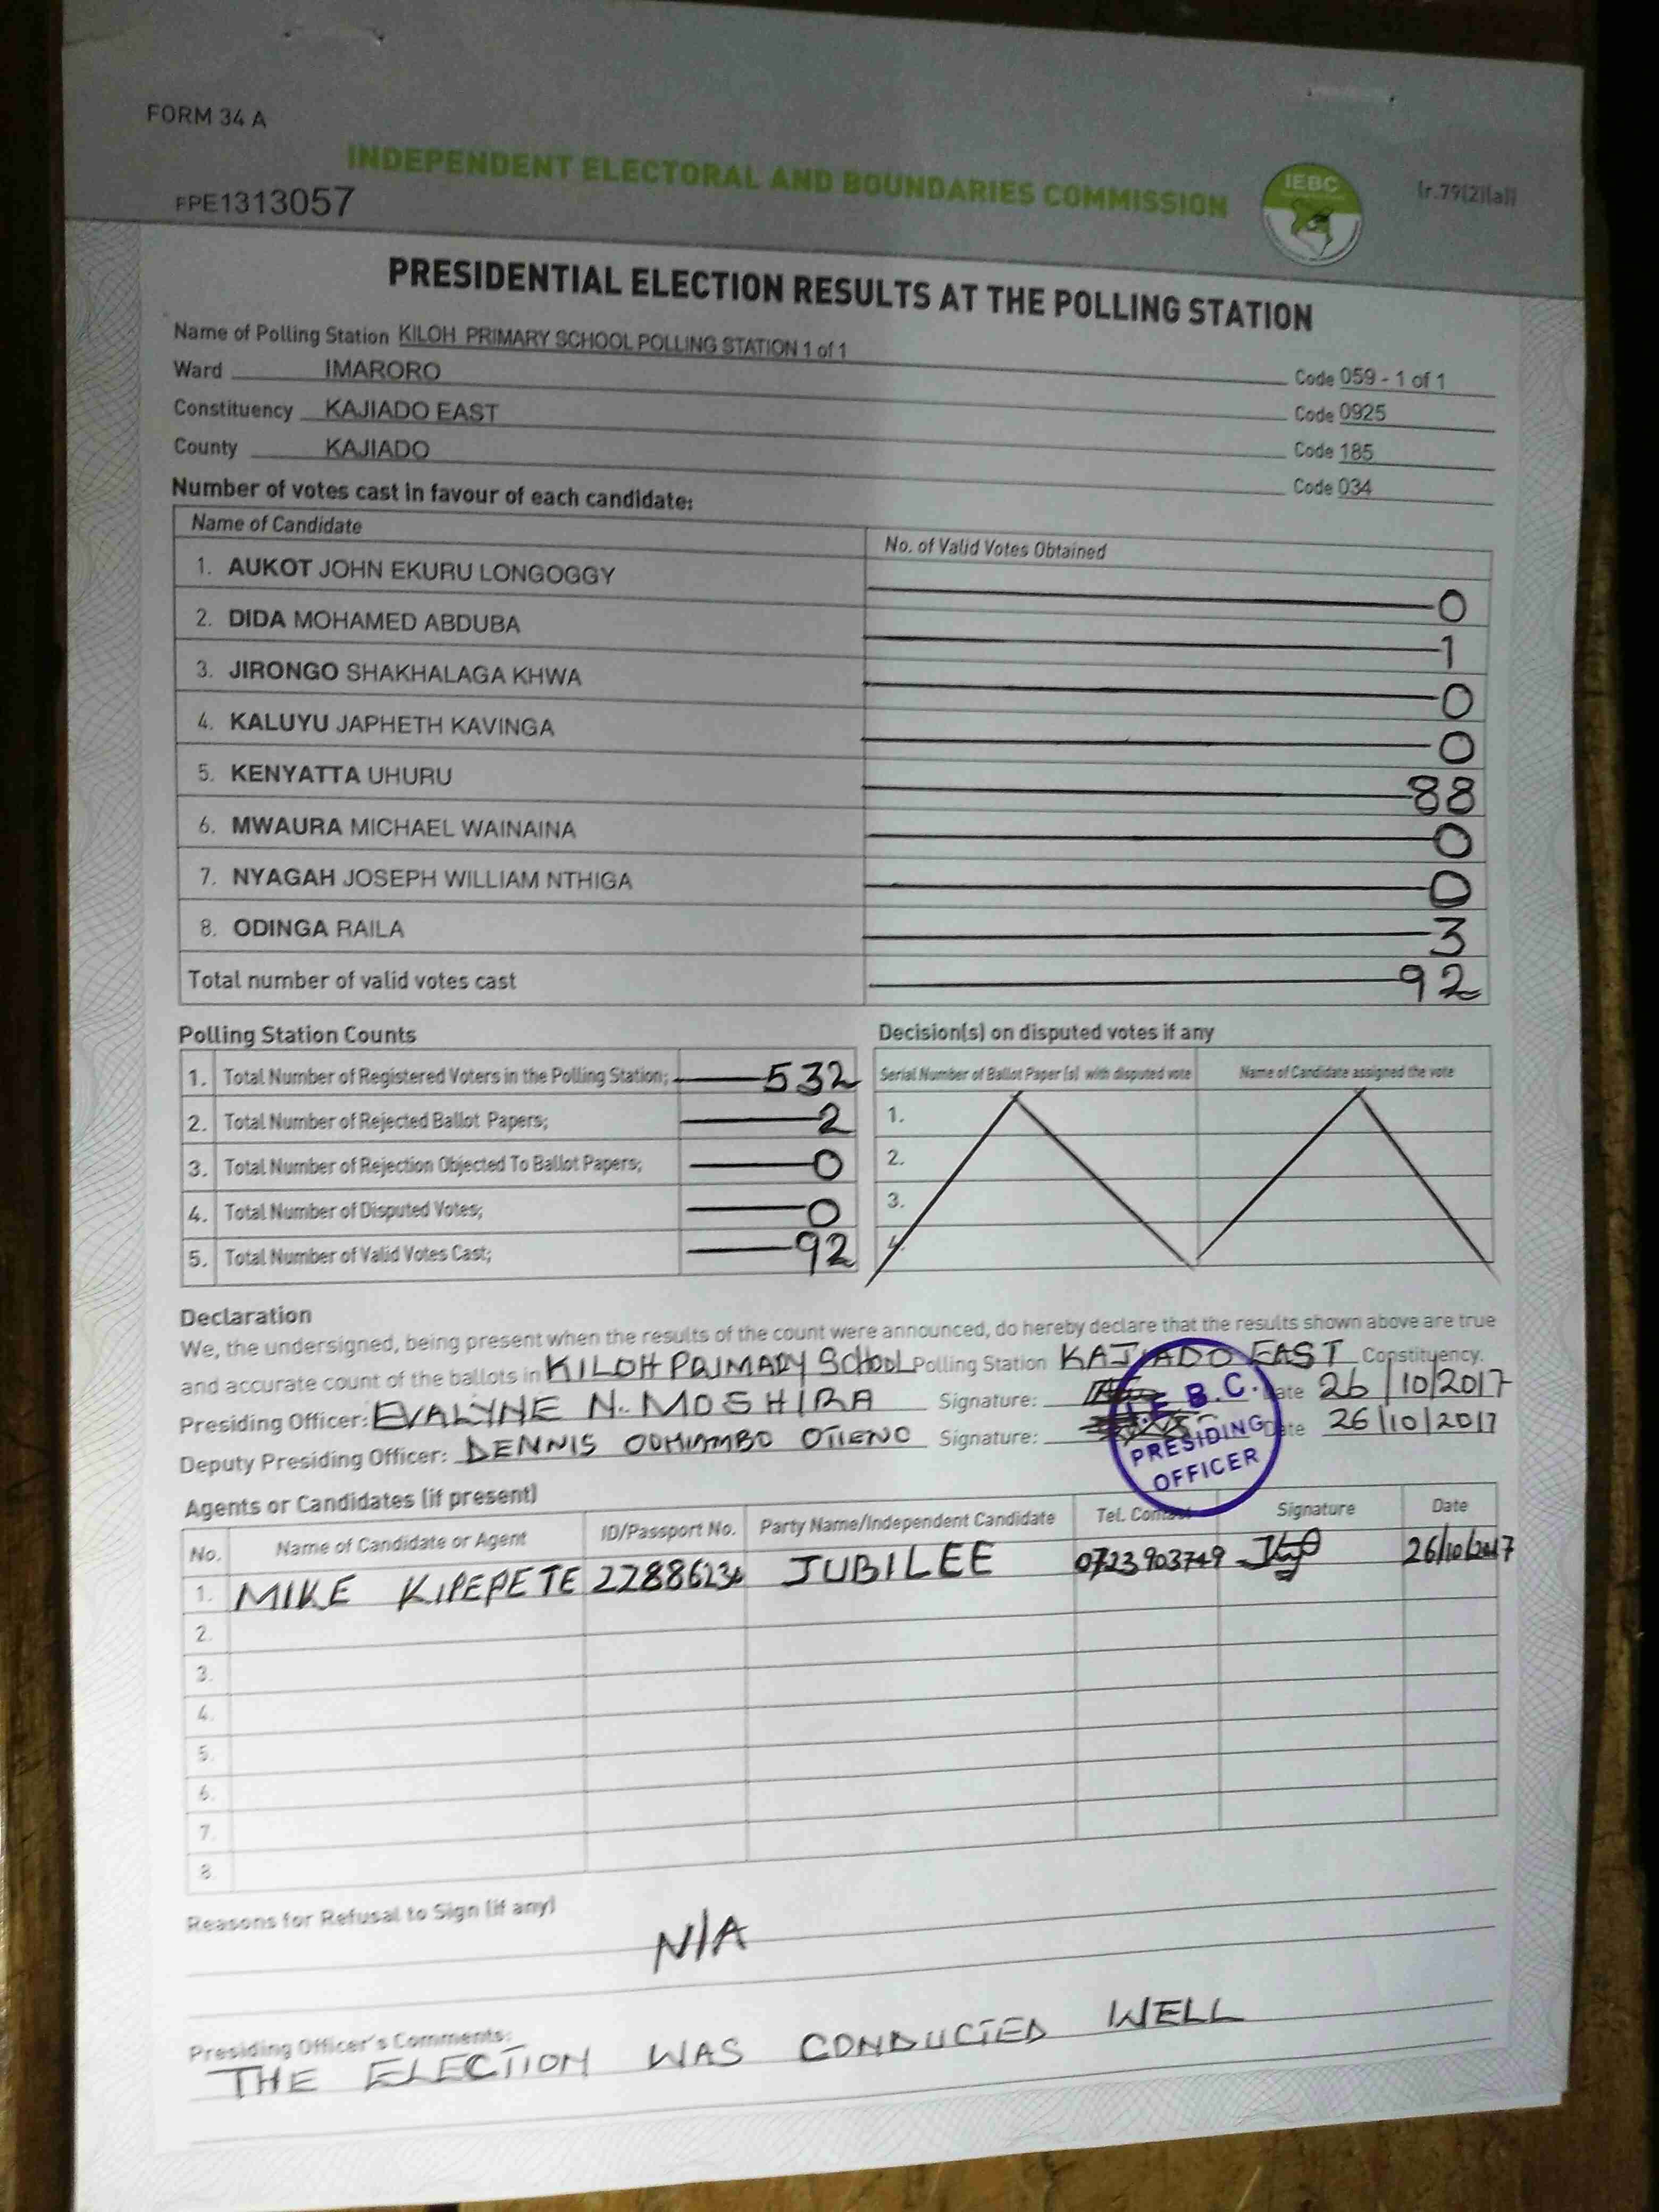 FORM 34 A
INDEPENDENT ELECTORAL AND BOUNDARIES COMMISSION
IEBC
(r.79(2)(a))
FPE1313057
PRESIDENTIAL ELECTION RESULTS AT THE POLLING STATION
Name of Polling Station KILOH PRIMARY SCHOOL POLLING STATION 1 of 1
Code 059 - 1 of 1
Ward IMARORO
Code 0925
Constituency KAJIADO EAST
Code 185
County KAJIADO
Code 034
Number of votes cast in favour of each candidate:
Name of Candidate No. of Valid Votes Obtained
1. AUKOT JOHN EKURU LONGOGGY 0
2. DIDA MOHAMED ABDUBA 1
3. JIRONGO SHAKHALAGA KHWA 0
4. KALUYU JAPHETH KAVINGA 0
5. KENYATTA UHURU 88
6. MWAURA MICHAEL WAINAINA 0
7. NYAGAH JOSEPH WILLIAM NTHIGA 0
8. ODINGA RAILA 3
Total number of valid votes cast 92
Polling Station Counts
1. Total Number of Registered Voters in the Polling Station; 532
2. Total Number of Rejected Ballot Papers; 2
3. Total Number of Rejection Objected To Ballot Papers; 0
4. Total Number of Disputed Votes; 0
5. Total Number of Valid Votes Cast; 92
Decision(s) on disputed votes if any
Serial Number of Ballot Paper (s) with disputed vote Name of Candidate assigned the vote
1.
2.
3.
4.
Declaration
We, the undersigned, being present when the results of the count were announced, do hereby declare that the results shown above are true
and accurate count of the ballots in KILOH PRIMARY SCHOOL Polling Station KAJIADO EAST Constituency.
Presiding Officer: EVALYNE N. MOSHIRA Signature: Date 26/10/2017
Deputy Presiding Officer: DENNIS ODHIAMBO OTIENO Signature: Date 26/10/2017
I.E.B.C.
PRESIDING
OFFICER
Agents or Candidates (if present)
No. Name of Candidate or Agent ID/Passport No. Party Name/Independent Candidate Tel. Contact Signature Date
1. MIKE KIPEPETE 22886236 JUBILEE 0723903749 26/10/2017
2.
3.
4.
5.
6.
7.
8.
Reasons for Refusal to Sign (if any)
N/A
Presiding Officer's Comments:
THE ELECTION WAS CONDUCTED WELL